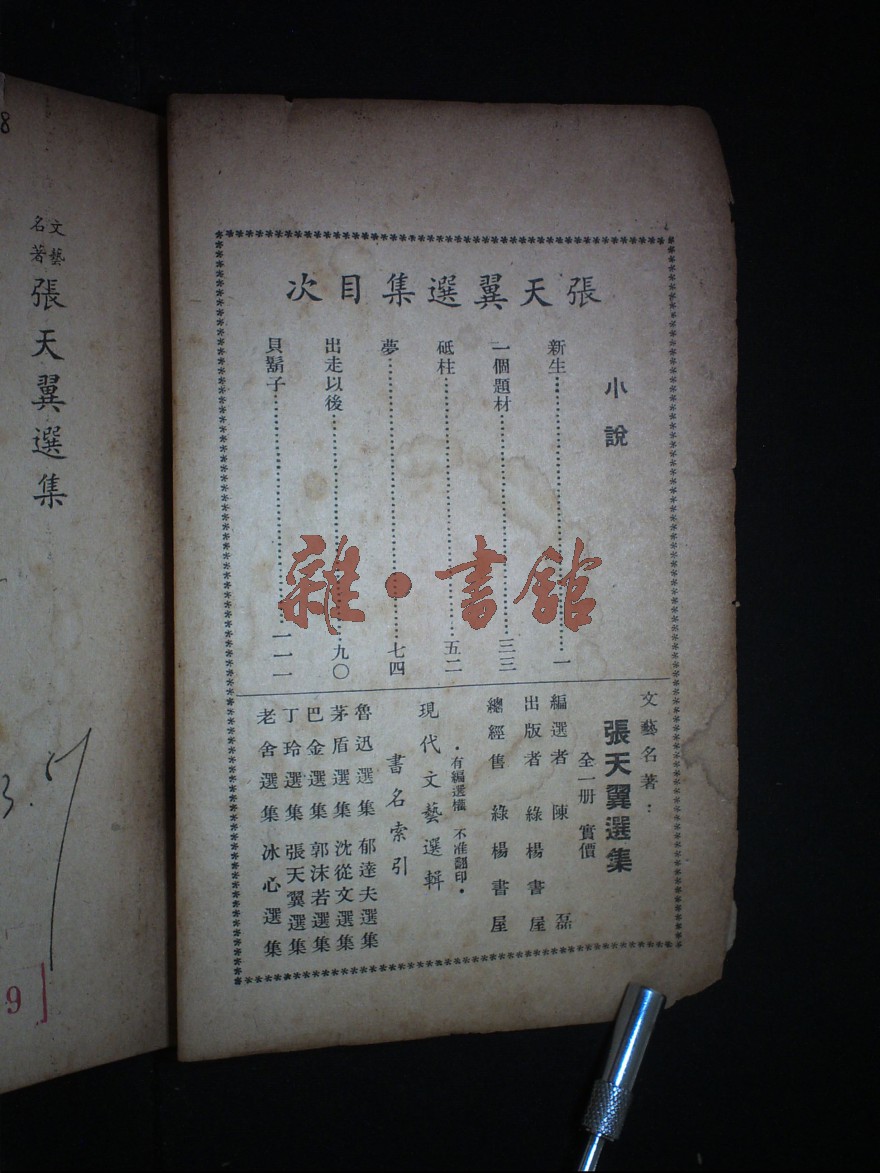 張天翼選集目次
小說
新生⋯⋯一
一個題材⋯⋯三三
砥柱⋯⋯五二
夢⋯⋯七四
出走以後⋯⋯九〇
貝鬍子⋯⋯一一一
文藝名著：
張天翼選集
全一册 實價
編選者 陳磊
出版者 綠楊書屋
總經售 綠楊書屋
・有編選權 不准翻印・
現代文藝選輯
書名索引
魯迅選集 郁達夫選集
茅盾選集 沈從文選集
巴金選集 郭沫若選集
丁玲選集 張天翼選集
老舍選集 冰心選集
雜・書館
文藝名著
張天翼選集
8
9